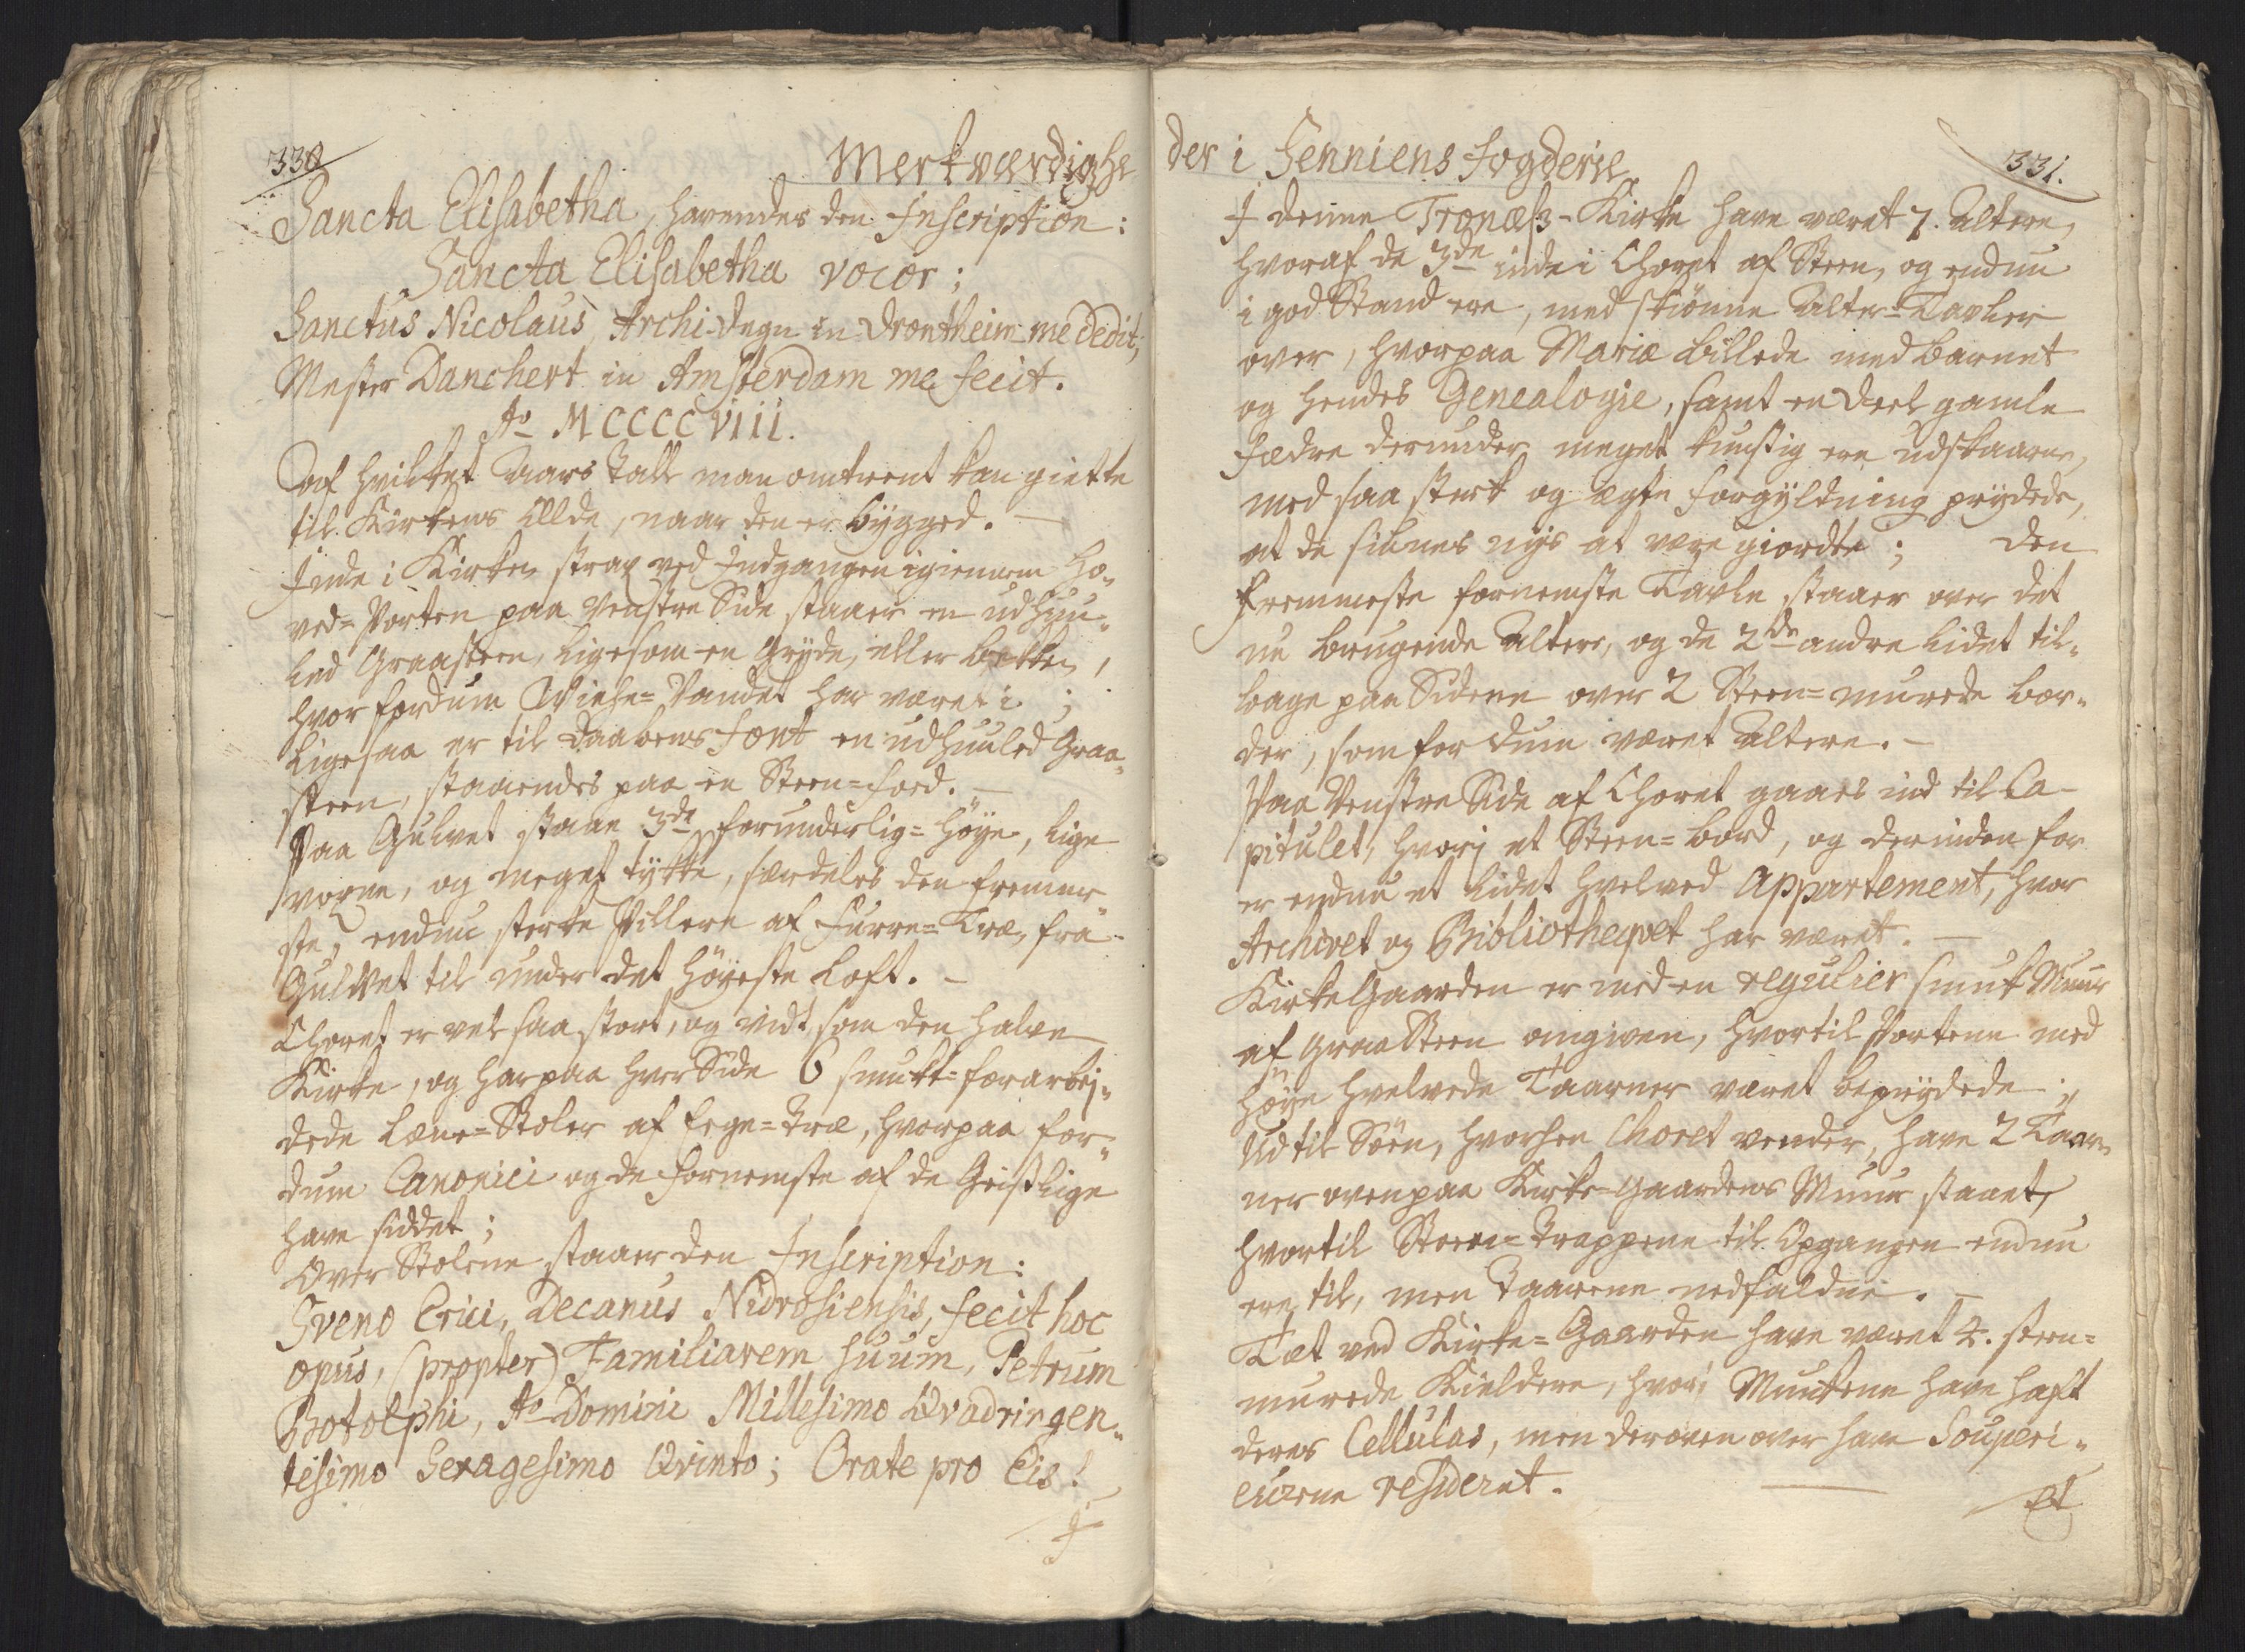 330
Merkværdighe
Sancta Elisabetha, havendes den Inscription:
Sancta Elisabetha vocor;
Sanctus Nicolaus, Archi-Degn in Drontheim me dedit,
Mester Danchert in Amsterdam me fecit.
Ao MCCCCVIII.
Af hvilket Aars Tall man omtrent kan giette
til Kirkens Ælde, naar den er bygged. —
Inde i Kirken strax ved Indgangen igiennem Ho-
ved-Porten paa venstre Side staaer en udhuu-
led Graasteen, ligesom en Gryde, eller Bekken,
hvor fordum Vicke-Vandet har været i;
Ligesaa er til Daabens Font en udhuuled Graa-
steen, staaendes paa en Steen-Foed. —
Paa Gulvet staae 3de forunderlig-høye, lige
vorne, og meget tykke, særdeles den fremmer-
ste, endnu sterke Pillere af Furre-Træ, fra
Gulvet til under det høyeste Loft. —
Choret er vel saa stort, og vidt, som den halve
Kirke, og har paa hver Side 6 smukt-forarbej-
dede Læne-Stoler af Ege-Træ, hvorpaa for-
dum Canonici og de fornemste af de Geistlige
have siddet;
Over Stolene staaer den Inscription:
Sveno Erici, Decanus Nidrosiensis, fecit hoc
opus, (propter) Familiarem suum, Petrum
Botolphi, Ao Domini Millesimo Qvadringen-
tesimo Sexagesimo Qvinto; Orate pro Eis!
I
der i Senniens Fogderie.
331.
I denne Tronæs-Kirke have været 7. Altere,
hvoraf de 3de inde i Choret af Steen, og endnu
i god Stand ere, med skiønne Alter-Tavler
over, hvorpaa Mariæ Billede med Barnet
og hendes Genealogie, samt en Deel gamle
Fædre derunder meget kunstig ere udskaarne,
med saa sterk og ægte Forgyldning prydede,
at de siunes nys at være giordte; Den
fremmeste fornemste Tavle staaer over det
nu brugende Altere, og de 2de andre lidet til-
bage paa Siderne over 2 Steen-murede Bor-
der, som fordum været Altere. —
Paa Venstre Side af Choret gaaes ind til Ca-
pitulet, hvorj et Steen-Bord, og derinden for
er endnu et lidet hvelved Appartement, hvor
Archivet og Bibliotheqvet har været. —
KirkeGaarden er med en regulier smuk Muur
af Graasteen omgiven, hvortil Portene med
høye hvelvede Taarner været beprydede;
Ud til Søen, hvorhen Choret vender, have 2 Taar-
ner ovenpaa Kirke-Gaardens Muur staaet,
hvortil Steen-Trappene til Opgangen endnu
ere til, men Taarene nedfaldne. —
Tæt ved Kirke-Gaarden have været 4. steen-
murede Kieldere, hvori Munkene have haft
deres Cellulas, men deroven over have Souperi-
eurene resideret. —
Et